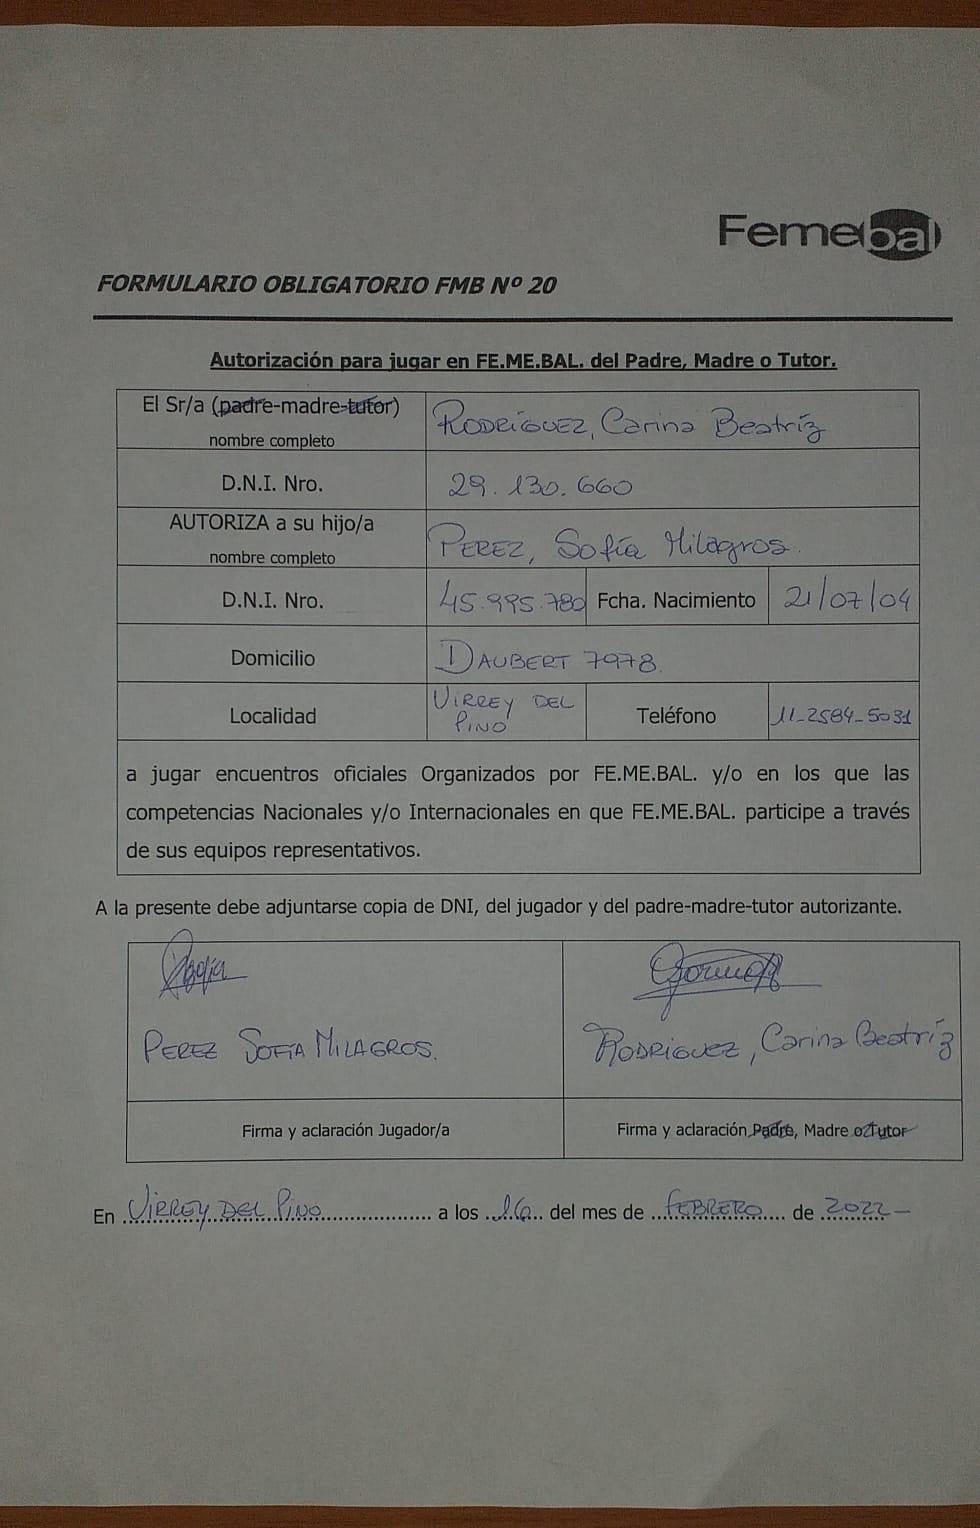 Femebal
FORMULARIO OBLIGATORIO FMB Nº 20
Autorización para jugar en FE.ME.BAL. del Padre, Madre o Tutor.
El Sr/a (padre-madre-tutor)
nombre completo
RODRÍGUEZ, Carina Beatríz
D.N.I. Nro.
29.130.660
AUTORIZA a su hijo/a
nombre completo
PEREZ, Sofía Milagros.
D.N.I. Nro.
45.995.780
Fcha. Nacimiento
21/07/04
Domicilio
DAUBERT 7978.
Localidad
VIRREY DEL
PINO
Teléfono
11-2584-5031
a jugar encuentros oficiales Organizados por FE.ME.BAL. y/o en los que las
competencias Nacionales y/o Internacionales en que FE.ME.BAL. participe a través
de sus equipos representativos.
A la presente debe adjuntarse copia de DNI, del jugador y del padre-madre-tutor autorizante.
PEREZ SOFÍA MILAGROS.
RODRIGUEZ, Carina Beatríz
Firma y aclaración Jugador/a
Firma y aclaración Padre, Madre o Tutor
En VIRREY DEL PINO a los 16 del mes de FEBRERO de 2022-